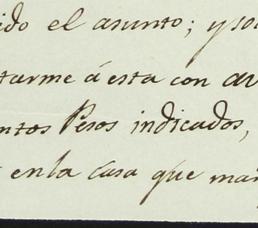 ido el asunto; y so
tarme á esta con av
ntos Pesos indicados,
en la casa que man